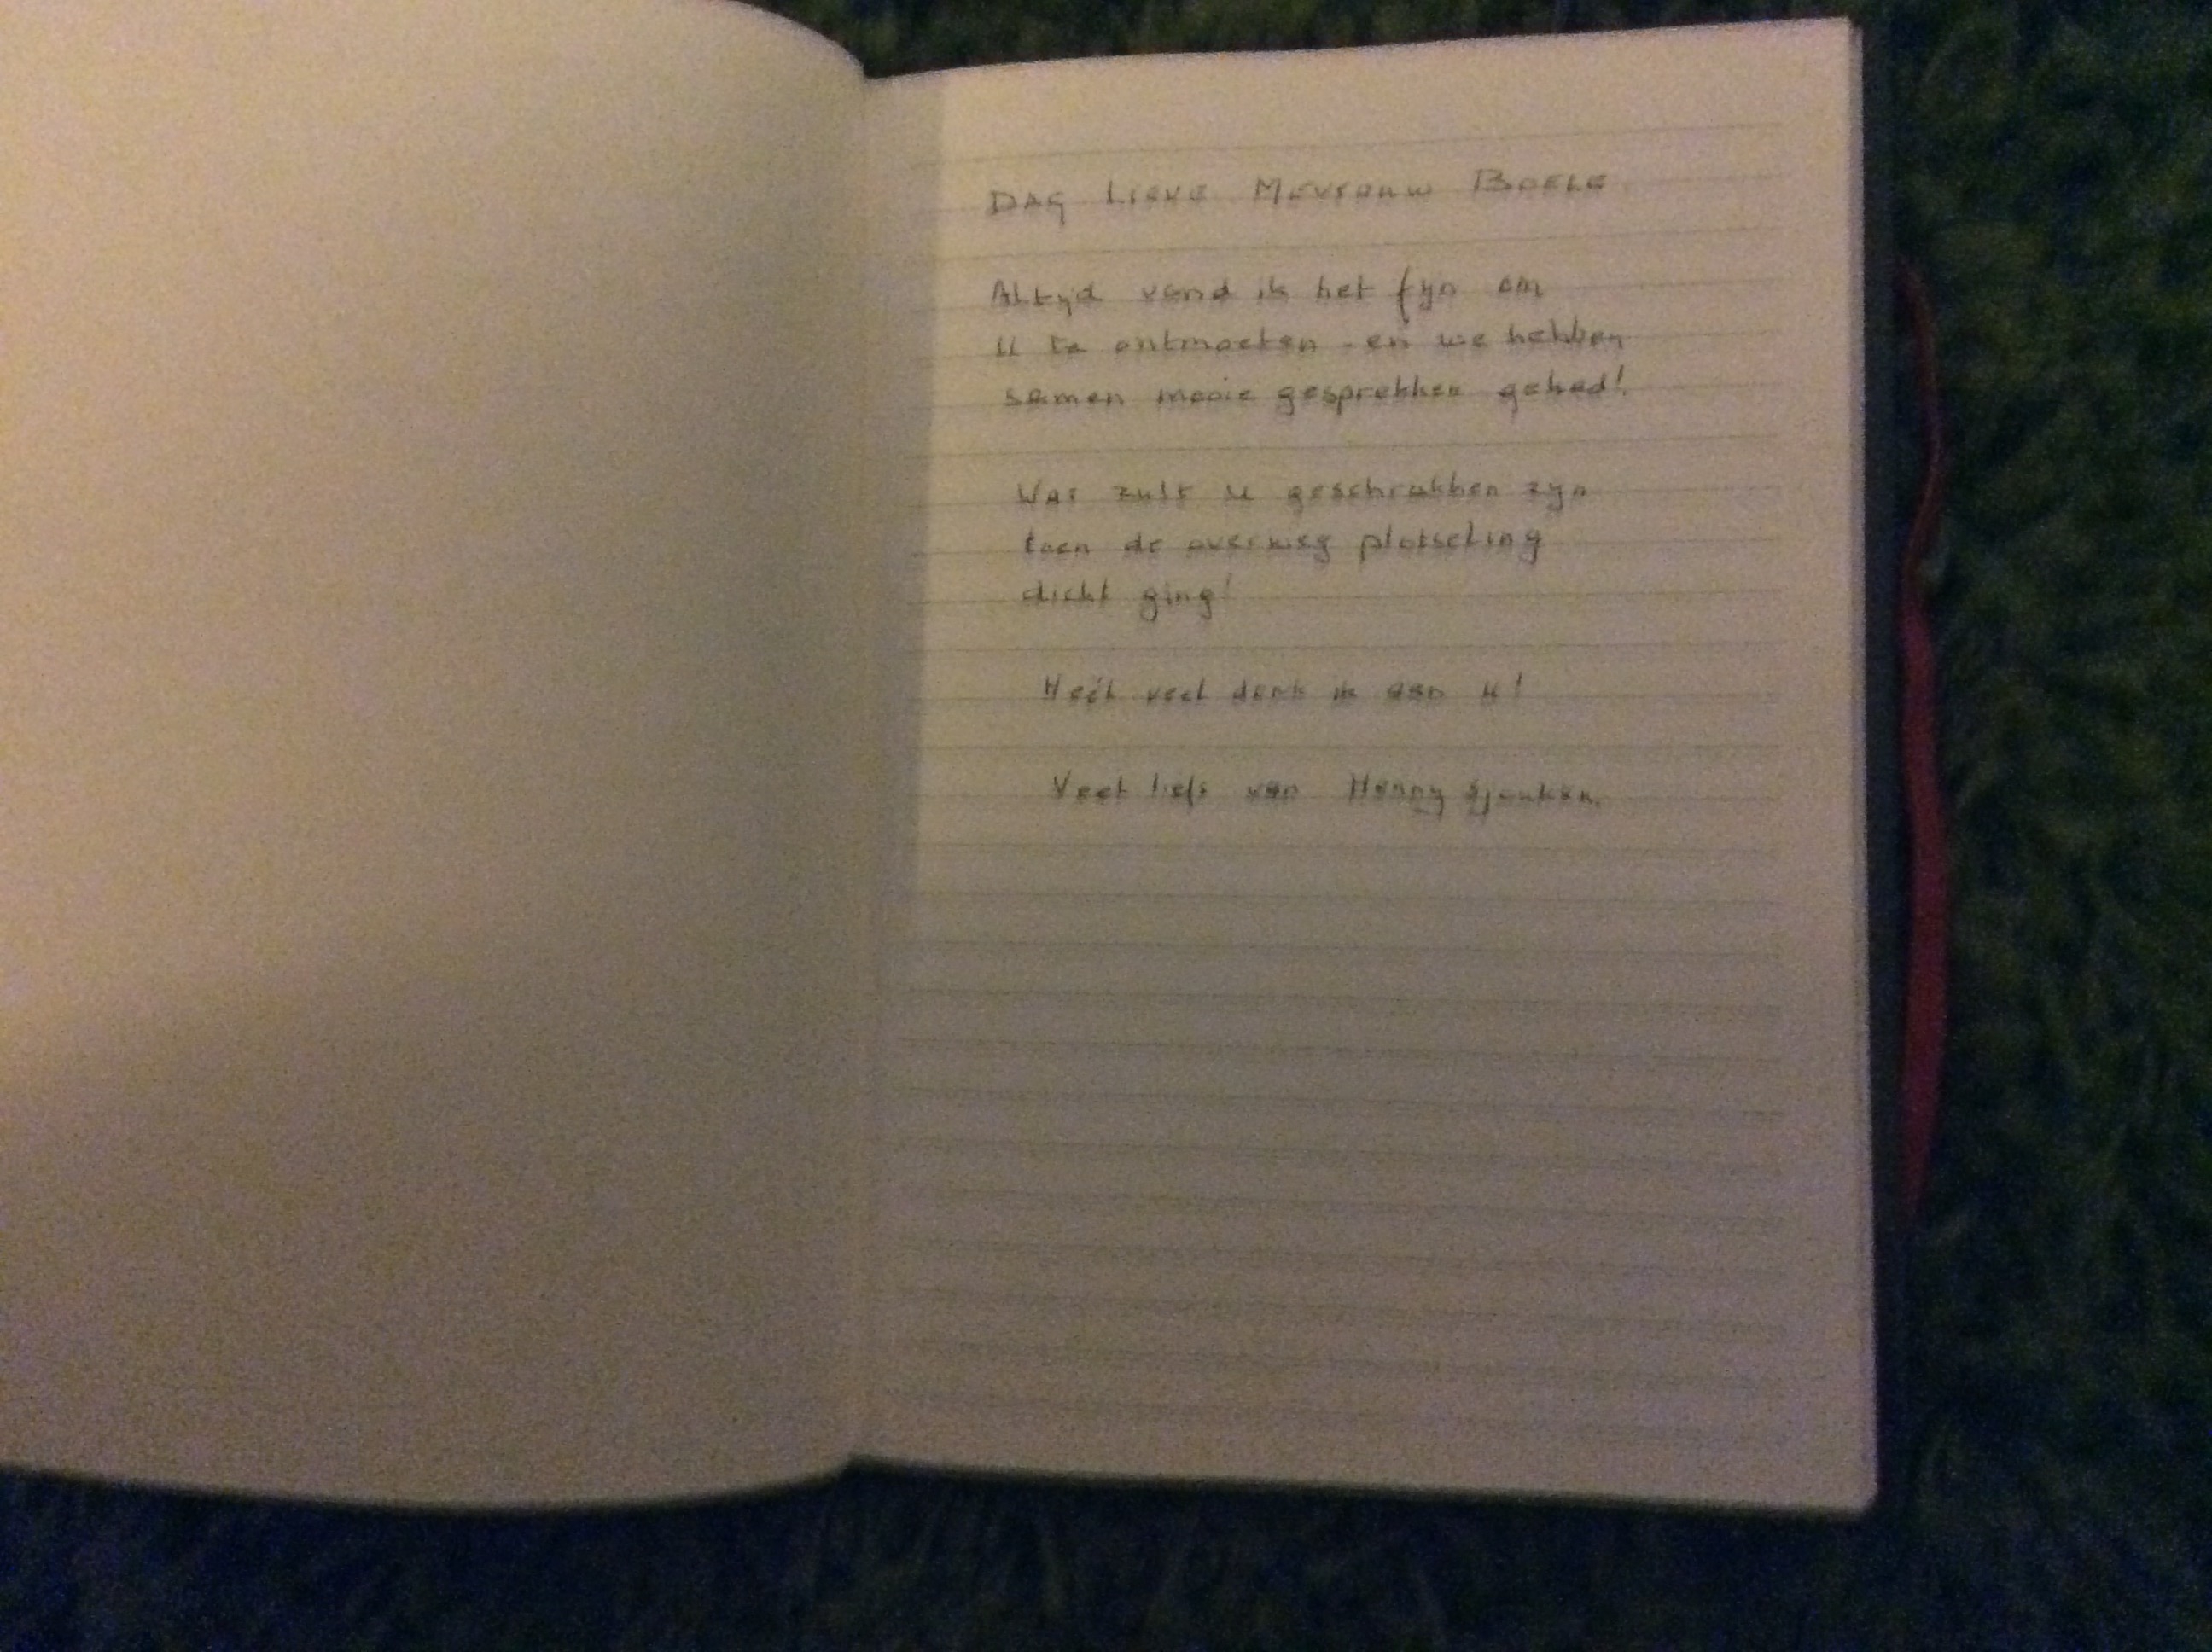 DAG LIEVE MEVROUW BOELE
Altyd vond ik het fyn om
U te ontmoeten - en we hebben
samen mooie gesprekken gehad!
Wat zult u geschrokken zyn
toen de overweg plotseling
dicht ging!
Heel veel denk ik aan U!
Veel liefs van Henny